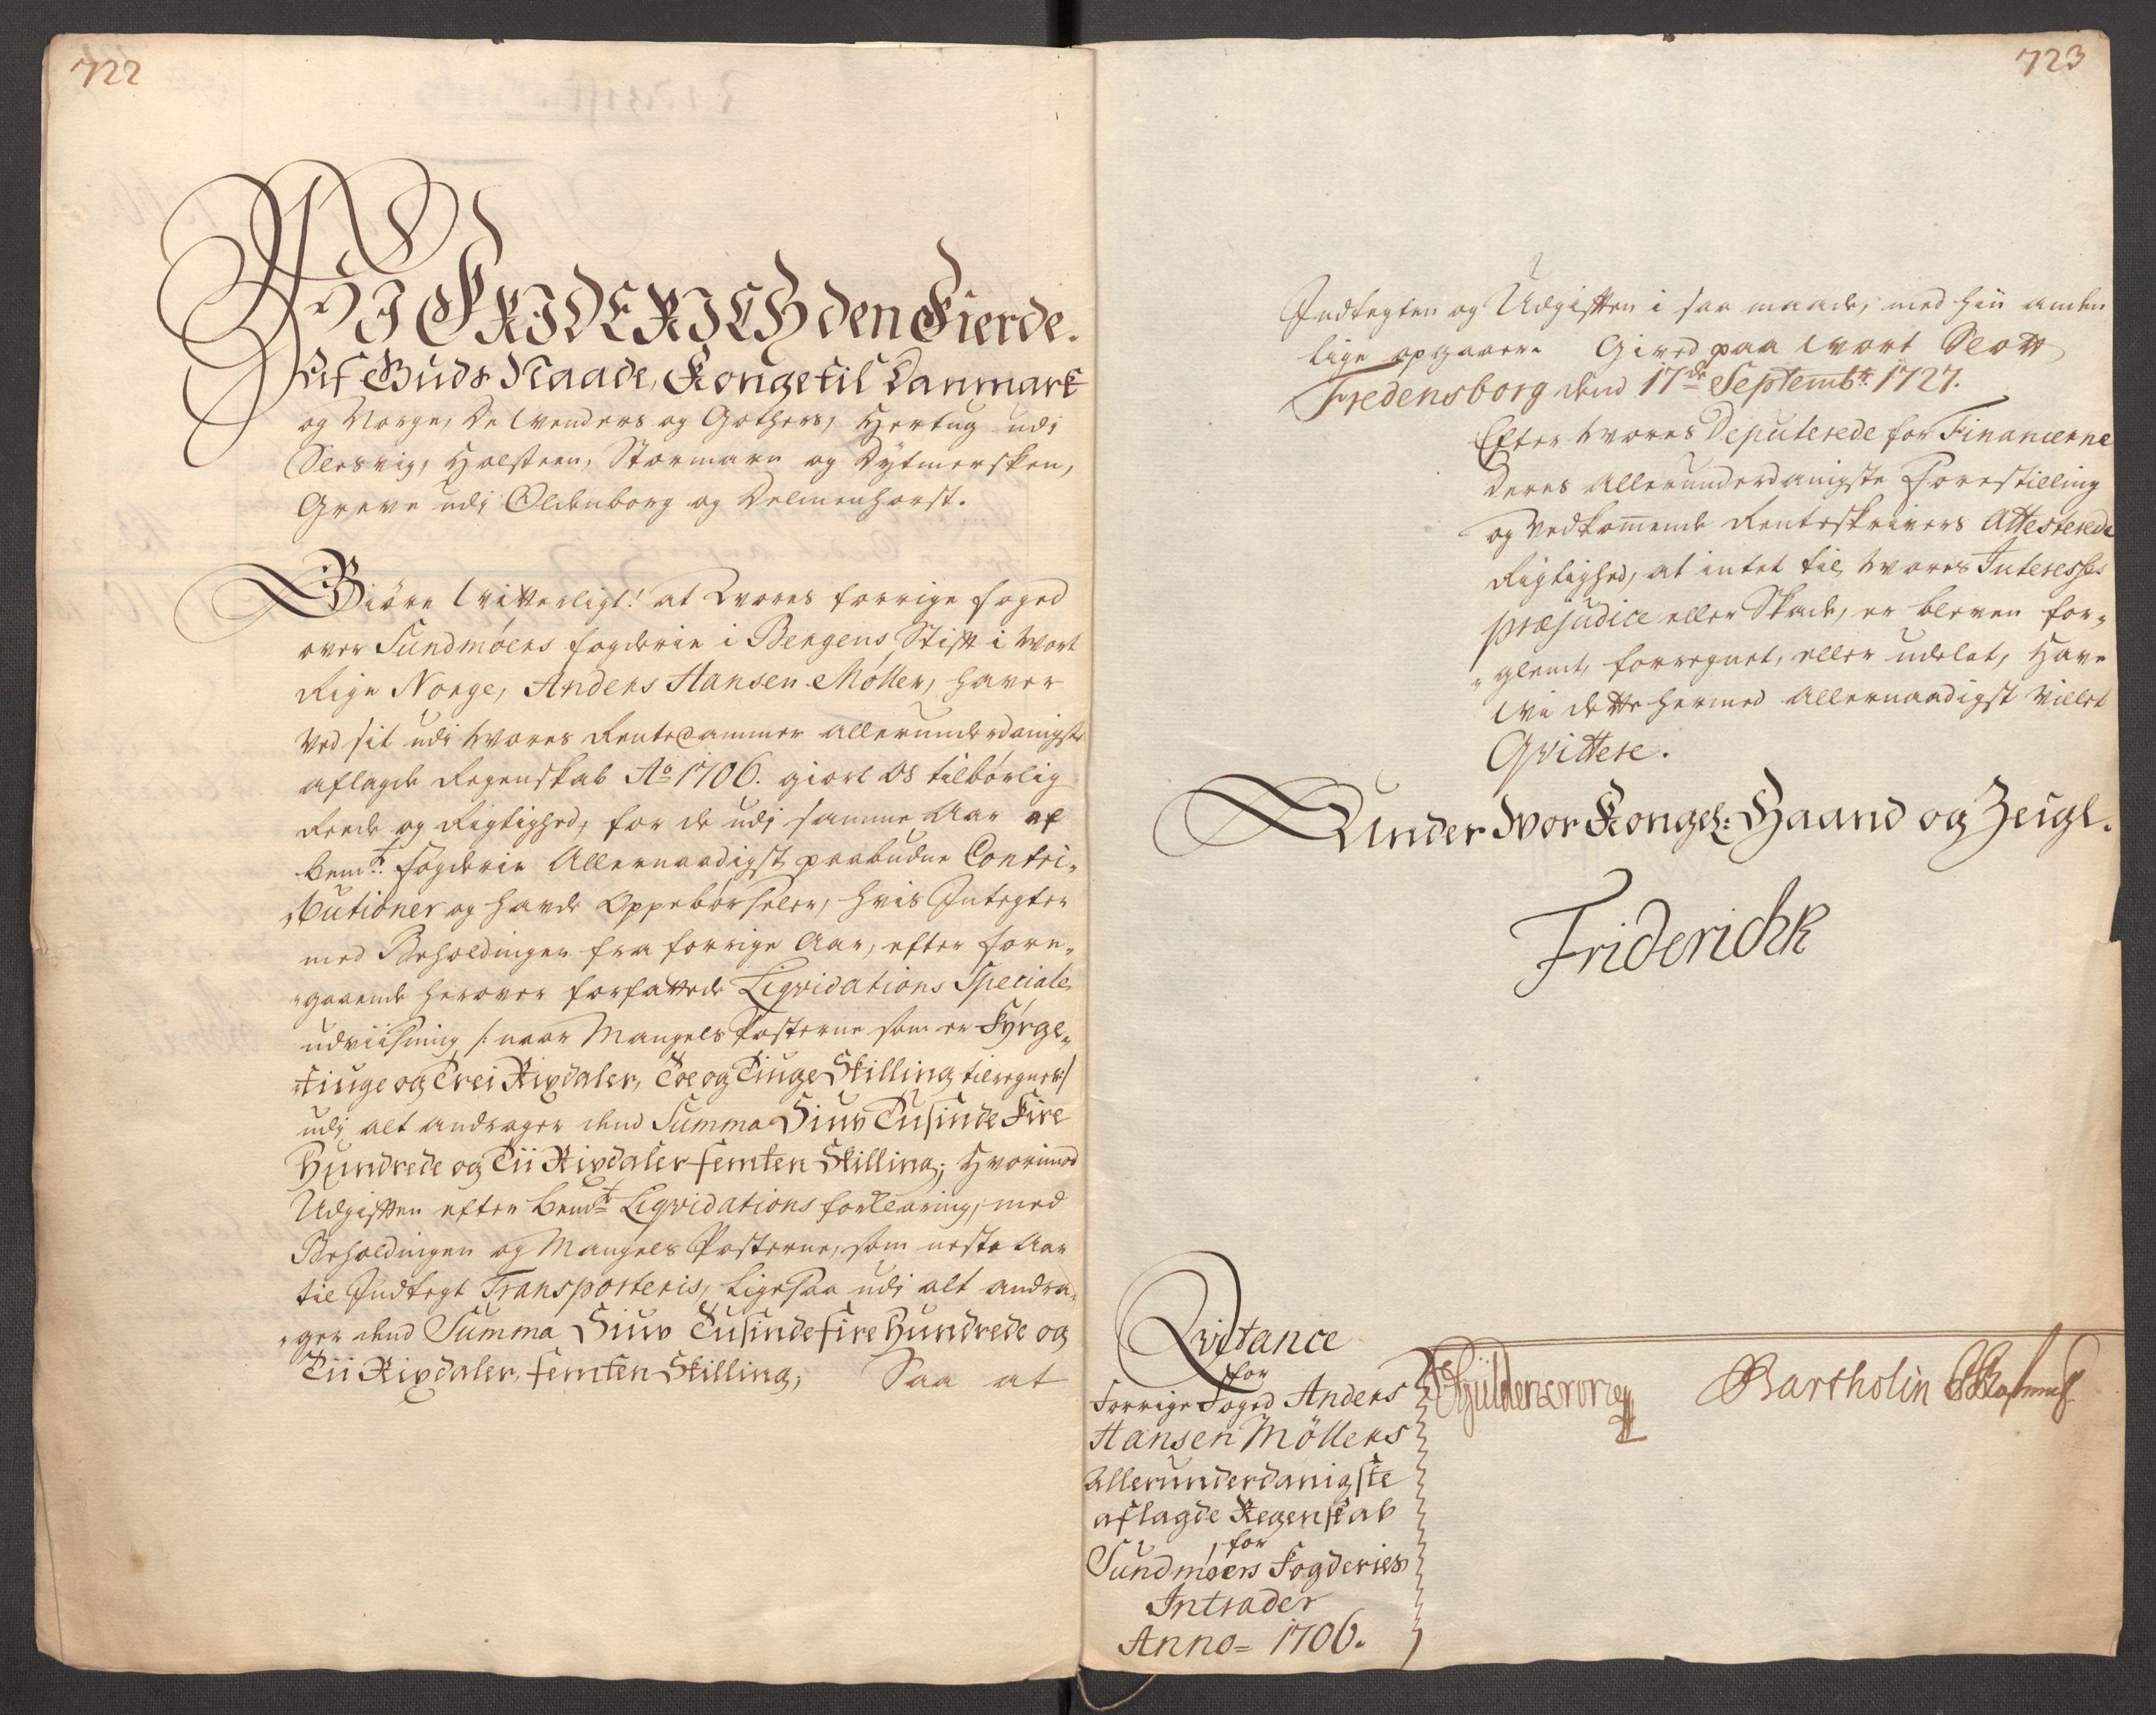 722
WI FRIDERICH den Fierde.
Af Guds Naade, Konge til Danmark
og Norge, De Wenders og Gothers, Hertug udi
Slesvig, Holsteen, Stormarn og Dytmersken,
Greve udi Oldenborg og Delmenhorst.
Giöre Witterligt! at Wores forrige foged
over Sundmöers fogderie i Bergens Stift i Wort
Rige Norge, Anders Hansen Möller, haver
Ved sit udi Wores Rentecammer allerunderdanigste
aflagde Regenskab Ao 1706. giort Os tilbörlig
Reede og Rigtighed, for de udi samme Aar af
bemte fogderie Allernaadigst paabudne Contri„
„butioner og havde Oppebörseler, hvis Integter
med Beholdingen fra forrige Aar, efter fore„
„gaaende herover forfattede Liqvidations Speciale
udviisning /: naar Mangels Posterne som er Fyrge„
„tiuge og Trei Rixdaler, Toe og Tiuge Skilling tilregnes :/
udi alt andrager dend Summa Siuv Tusinde Fire
Hundrede og Tii Rixdaler femten Skilling; Hvorimod
Udgiften efter bemte Liqvidations forklaring, med
Beholdingen og Mangels Posterne, som neste Aar
til Indtegt Transporteris, ligesaa udi alt andra„
„ger dend Summa Siuv Tusinde fire Hundrede og
Tii Rixdaler, femten Skilling; Saa at
723
Indtegten og Udgiften i saa maade, med hin anden
lige opgaaer. Gived paa Wort Slott
Fredensborg dend 17de Septembr: 1727.
Efter Wores Deputerede for Financerne
Deres Allerunderdanigste Forestilling
og Vedkommende Renteskrivers Attesterede
Rigtighed, at intet til Wores Interesses
præjudice eller Skade, er bleven for„
„glemt, forregnet, eller udelat, Have
Wi dette hermed Allernaadigst Villet
Qvittere.
Under Wor Kongel: Haand og Zeigl.
Friderich R
Qvitance
for
Forrige Foged Anders
Hansen Möllers
Allerunderdanigste
aflagde Regenskab
for
Sundmöers Fogderies
Intrader
Anno= 1706.
Güldencrone
Bartholin